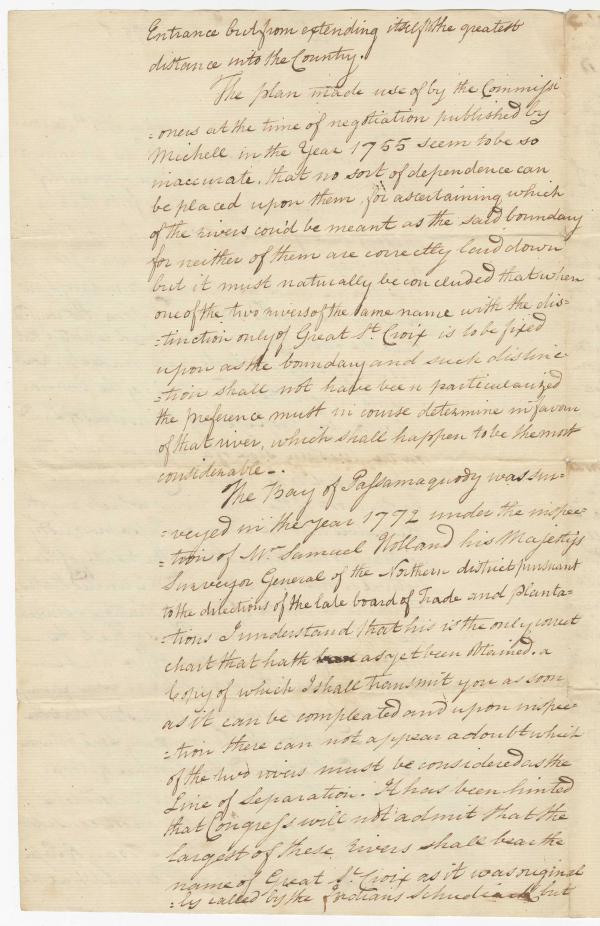 Entrance but from extending itself the greatest
distance into the Country.
The plan made use of by the Commissi
=oners at the time of negotiation published by
Michell in the Year 1755 seem to be so
inaccurate, that no sort of dependence can
be placed upon them, for ascertaining which
of the rivers cou'd be meant as the said boundary
for neither of them are correctly laid down
but it must naturally be concluded that when
one of the two rivers of the same name with the dis=
=tinction only of Great St. Croix is to be fixed
upon as the boundary and such distinc
=tion shall not have been particularized
the preference must in course determine in favour
of that river, which shall happen to be the most
considerable -.
The Bay of Passamaquody was sur=
=veyed in the year 1772 under the inspec=
=tion of Mr. Samuel Holland his Majestys
Surveyor General of the Northern district pursuant
to the directions of the late board of Trade and Planta=
=tions I understand that his is the only correct
chart that hath as yet been obtained. a
Copy of which I shall transmit you as soon
as it can be compleated and upon inspec=
=tion there can not appear a doubt which
of the two rivers must be considered as the
Line of Separation. It has been hinted
that Congress will not admit that the
largest of these rivers shall bear the
name of Great St. Croix as it was original
=ly called by the Indians but